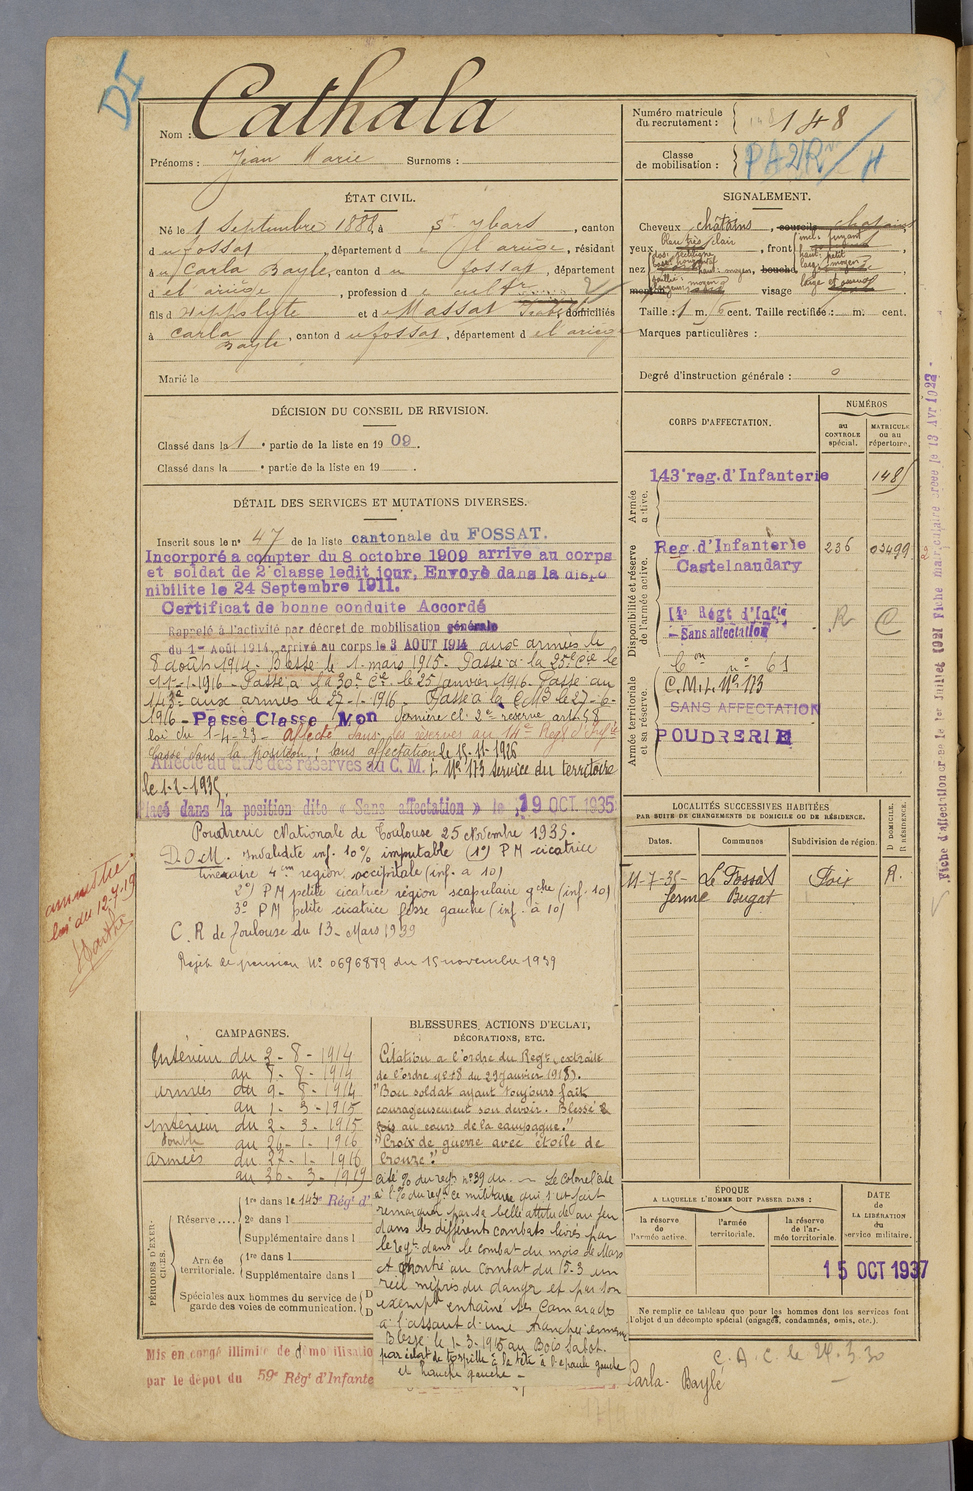 DI
Nom : Cathala
Prénoms : Jean Marie Surnoms :
Numéro matricule
du recrutement : 148
Classe
de mobilisation : PA2R
ÉTAT CIVIL.
Né le 1 Septembre 1888, à St Ybars, canton
du fossat, département de l'ariège, résidant
à Carla Bayle, canton du fossat, département
d el ariège, profession de cultr
fils d'Hippolyte et de Massat domiciliés
à Carla Bayle, canton du fossat, département d el ariège
Marié le
SIGNALEMENT.
Cheveux châtains, sourcils chatains
yeux bleu très clair, front incl: fuyant
haut: petit
larg: moyen
nez dos: rectiligne
haut: moyen, bouche
menton visage large et
Taille : 1 m. 6 cent. Taille rectifiée : m. cent.
Marques particulières :
Degré d'instruction générale : 0
DÉCISION DU CONSEIL DE REVISION.
Classé dans la 1e partie de la liste en 1909.
Classé dans la e partie de la liste en 19 .
CORPS D'AFFECTATION.
NUMÉROS
au
CONTROLE
spécial.
MATRICULE
ou au
répertoire.
Armée
active.
143e reg. d'Infanterie 1485
Disponibilité et réserve
de l'armée active.
Reg. d'Infanterie 236 03499
Castelnaudary
14e Régt d'Inftie R C
— Sans affectation
Armée territoriale
et sa réserve.
C on no 61
C.M.I. No 173
SANS AFFECTATION
POUDRERIE
DÉTAIL DES SERVICES ET MUTATIONS DIVERSES.
Inscrit sous le no 47 de la liste cantonale du FOSSAT.
Incorporé a compter du 8 octobre 1909 arrive au corps
et soldat de 2e classe ledit jour, Envoyé dans la dispo
nibilite le 24 Septembre 1911.
Certificat de bonne conduite Accordé
Rappelé à l'activité par décret de mobilisation générale
du 1er Août 1914, arrivé au corps le 3 AOUT 1914 aux armées le
8 août 1914. Blessé le 1 mars 1915. Passé à la 25e Cie le
11-1-1916 - Passé à la 30e Cie le 25 Janvier 1916. Passé au
143e aux armées le 27-1-1916 - Passé à la C M3 le 27-6-
1916 - Passé Classe Mon dernière cl: 2e réserve art: 58
loi du 1-4-23 - Affecté dans les réserves au 14e Régt d'Inftie
Classé dans la position: sans affectation le 15-11-1926
Affecté au titre des réserves au C. M. I No 173 Service du territoire
le 1-2-1935.
Placé dans la position dite « Sans affectation » le 19 OCT. 1935
Poudrerie Nationale de Toulouse 25 Novembre 1935.
D.O.M. Invalidité inf. 10% imputable (1o) P M cicatrice
linéaire 4 cm region occipitale (inf. à 10)
2o) P M petite cicatrice région scapulaire gche (inf. 10)
3o P M petite cicatrice fesse gauche (inf. à 10)
C. R de Toulouse du 13 - Mars 1939
Rejet de pension No 0696879 du 15 novembre 1939
amnistie
Loi du 12-7-19
LOCALITÉS SUCCESSIVES HABITÉES
PAR SUITE DE CHANGEMENTS DE DOMICILE OU DE RÉSIDENCE.
D DOMICILE.
R RÉSIDENCE.
Dates. Communes Subdivision de région.
11-7-35- Le Fossat Foix R.
ferme Bugat
CAMPAGNES.
Intérieur du 3 - 8 - 1914
au 8 - 8 - 1914
Armées du 9 - 8 - 1914
au 1 - 3 - 1915
Intérieur du 2 - 3 - 1915
au 26 - 1 - 1916
Armées du 27 - 1 - 1916
au 26 - 3 - 1919
BLESSURES, ACTIONS D'ÉCLAT,
DÉCORATIONS, ETC.
Citation à l'ordre du Regt, extraite
de l'ordre No 18 du 29 janvier 1918.
"Bon soldat ayant toujours fait
courageusement son devoir. Blessé 2
fois au cours de la campagne."
"Croix de guerre avec étoile de
bronze".
cité % du regt no 39 du - Le Colonel cite
à l'% du regt ce militaire qui s'est fait
remarquer par sa belle attitude au feu
dans les différents combats livrés par
le regt dans le combat du mois de Mars
et montré au combat du 15-3 un
réel mépris du danger et par son
exemple entraîné ses camarades
à l'assaut d'une tranchée ennemie
Blessé le 1-3-1915 au Bois Sabot.
par éclat de torpille à la tête à l'épaule gauche
et hanche gauche -
PÉRIODES D'EXERCICES.
Réserve....
1re dans le 143e Régt d'
2e dans l
Supplémentaire dans l
Armée
territoriale.
1re dans l
Supplémentaire dans l
Spéciales aux hommes du service de
garde des voies de communication.
ÉPOQUE
A LAQUELLE L'HOMME DOIT PASSER DANS :
la réserve
de
l'armée active.
l'armée
territoriale.
la réserve
de l'ar-
mée territoriale.
DATE
de
LA LIBÉRATION
du
service militaire.
15 OCT 1937
Ne remplir ce tableau que pour les hommes dont les services font
l'objet d'un décompte spécial (engagés, condamnés, omis, etc.).
Mis en congé illimité de démobilisatio
par le dépot du 59e Régt d'Infante
C. A. C. le 24.3.30
Carla-Baylé
Fiche d'affectation cree le 1er Juillet 1921 Fiche matriculaire creee le 13 Avr 1922